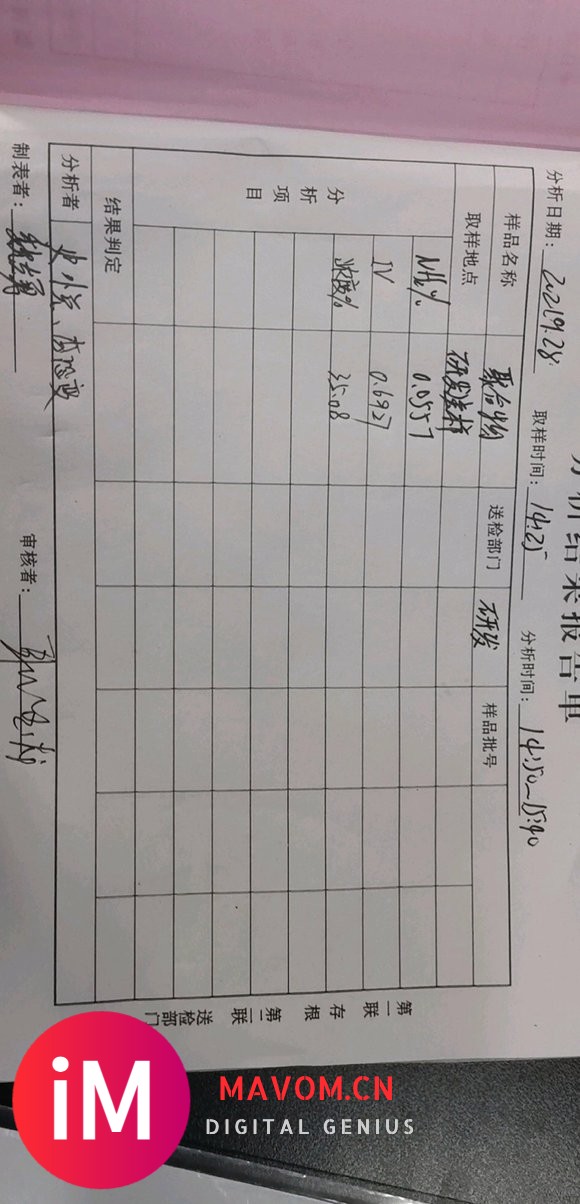 分析结果报告单
分析日期：2021.9.28 取样时间：14:25 分析时间：14:50~15:40
样品名称 聚合物 送检部门 研发 样品批号
取样地点 研发送样
分析项目
NH₂% 0.0557
IV 0.6927
浓度% 35.08
结果判定
分析者
制表者： 审核者：
第一联 存根 第二联 送检部门
iM
MAVOM.CN
DIGITAL GENIUS